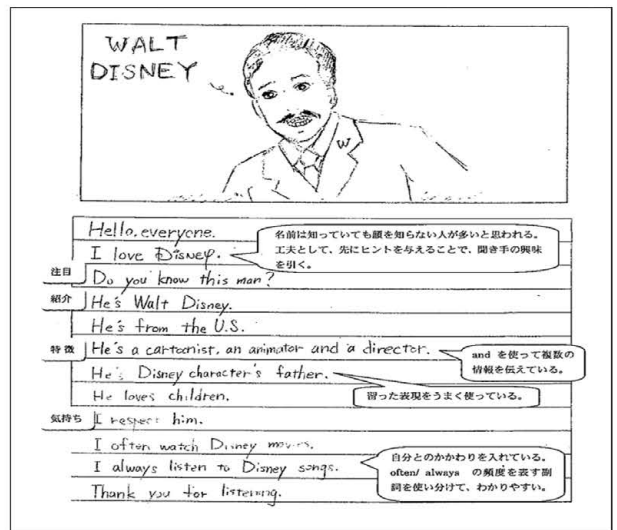 WALT
DISNEY
W
Hello, everyone.
I love Disney.
名前は知っていても顔を知らない人が多いと思われる。
工夫として、先にヒントを与えることで、聞き手の興味
を引く。
注目
Do you know this man?
紹介
He's Walt Disney.
He's from the U.S.
特徴
He's a cartoonist, an animator and a director.
and を使って複数の
情報を伝えている。
He's Disney character's father.
習った表現をうまく使っている。
He loves children.
気持ち
I respect him.
I often watch Disney movies.
I always listen to Disney songs.
自分とのかかわりを入れている。
often/ always の頻度を表す副
詞を使い分けて、わかりやすい。
Thank you for listening.